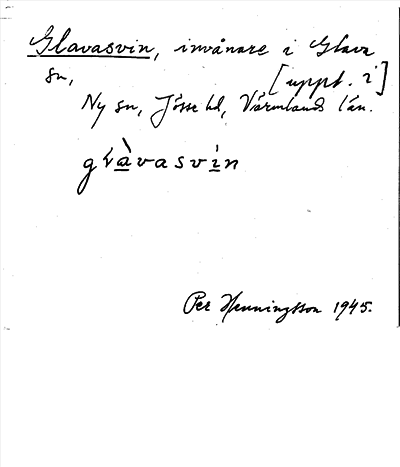 Glavasvin, invånare i Glava
sn,
[uppt. i]
Ny sn, Jösse hd, Värmlands län.
glàvasvín
Per Henningsson 1945.